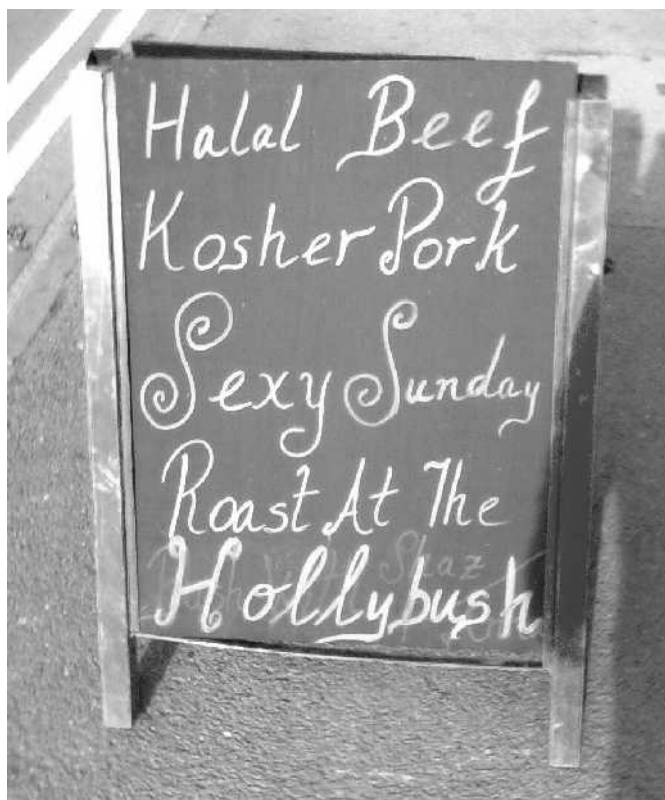 Halal Beef
Kosher Pork
Sexy Sunday
Roast At The
Hollybush